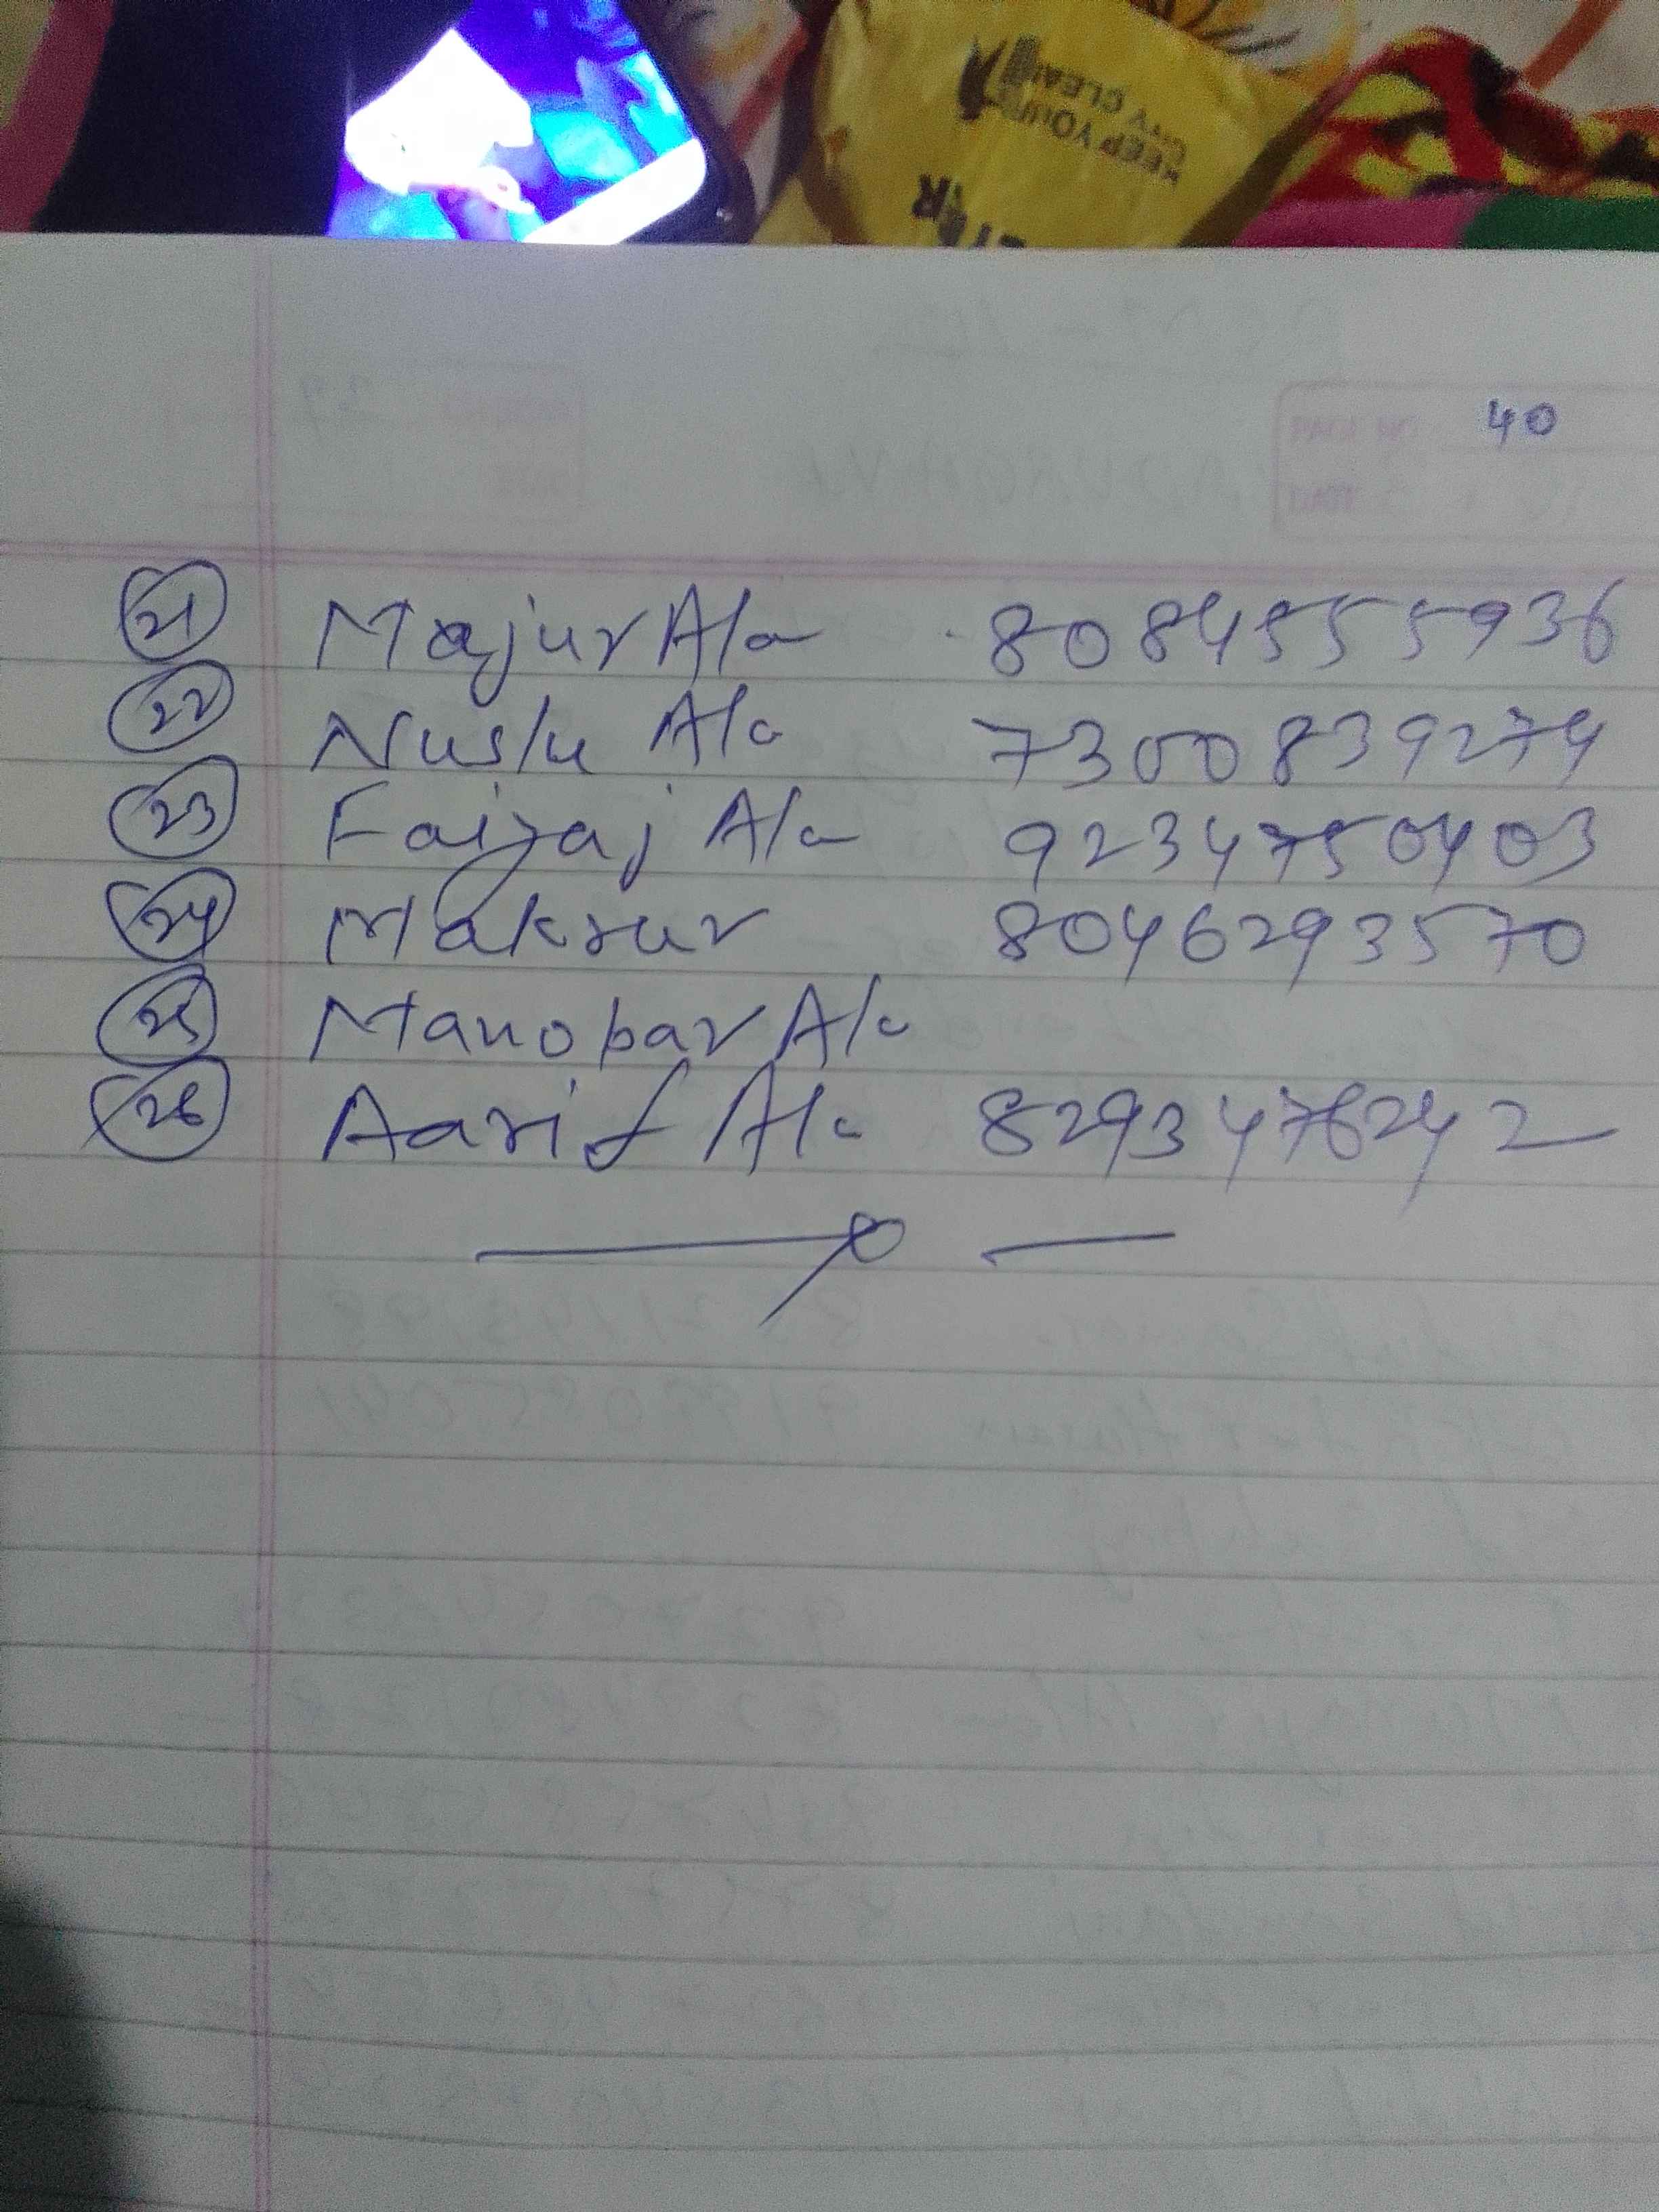 KEEP YOUR
CITY CLEAN
PAGE NO. 40
DATE
21 Majur Ala 8084555936
22 Nuslu Ala 7300839274
23 Faizaj Ala 9234750403
24 Maksur 8046293570
25 Manobar Ala
26 Aarif Ala 8293476242